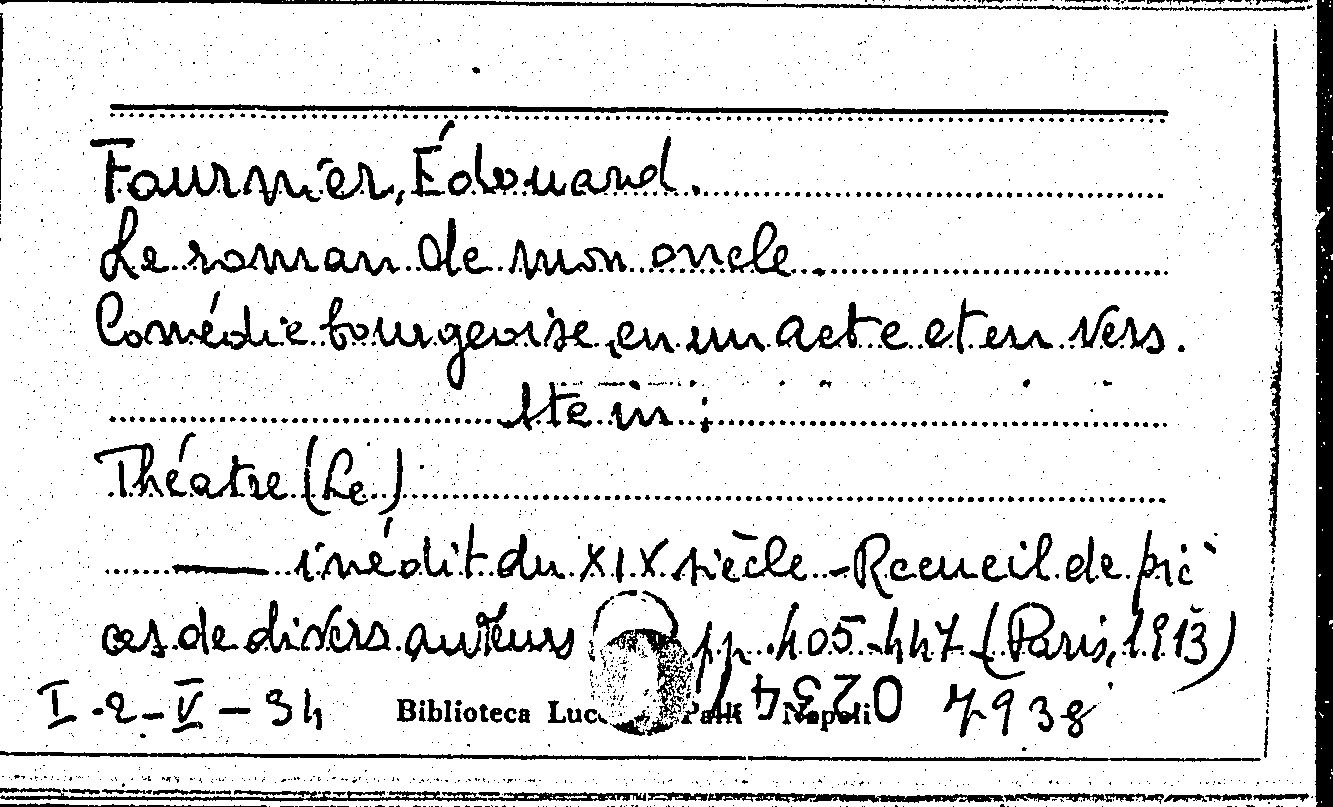 Fournier, Édouard.
Le roman de mon oncle.
Comédie bourgeoise, en un acte et en vers.
Sta in:
Théatre (Le)
— inédit du XIX siècle - Recueil de piè
ces de divers auteurs pp. 405-447 (Paris, 1913)
I-2-V-34 Biblioteca Palli Napoli 7938